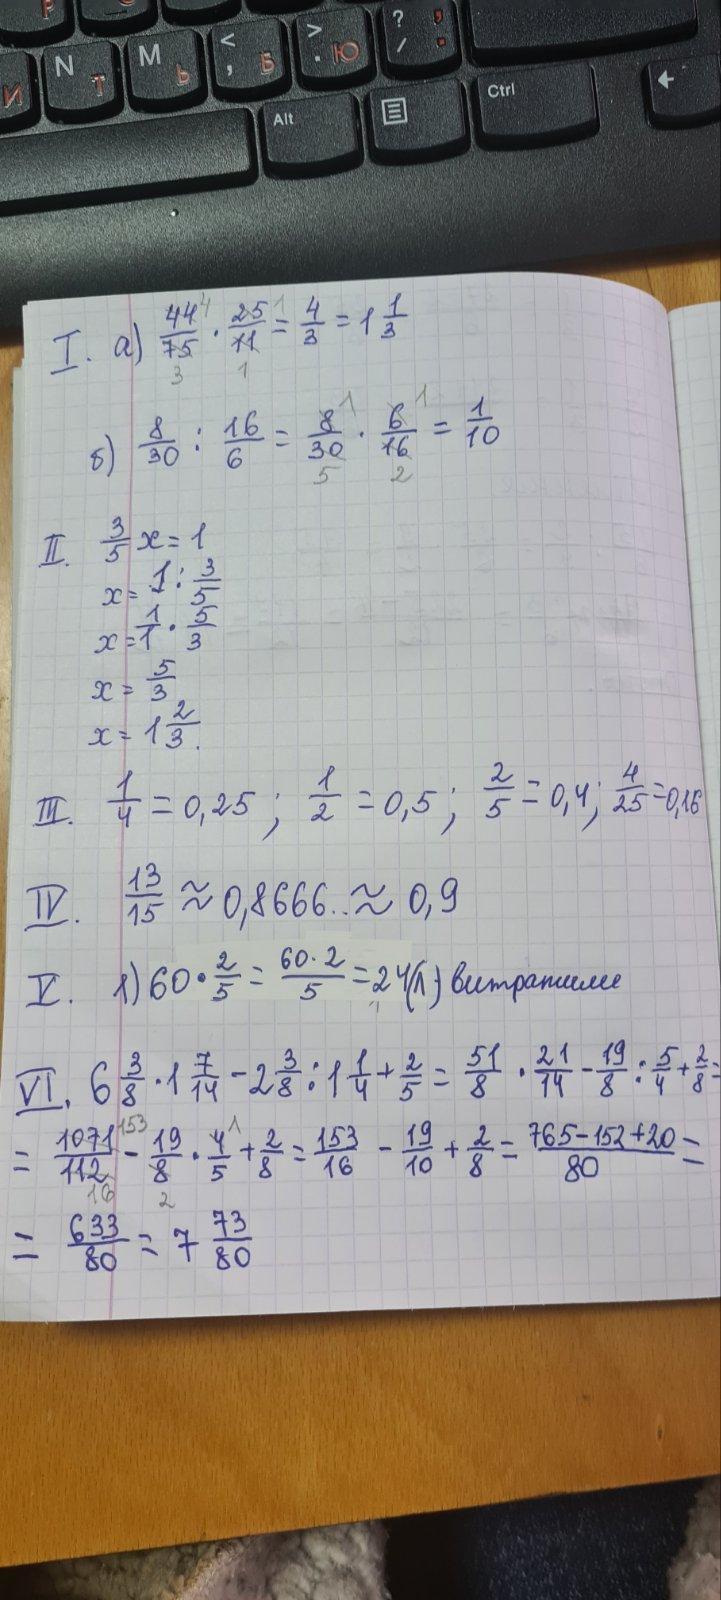 N т M ь < , Б > . Ю ? / ,
И Alt Ctrl ←
I. а) 44/75 · 25/11 = 4/3 = 1 1/3
4 1
3 1
б) 8/30 : 16/6 = 8/30 · 6/16 = 1/10
1 1
5 2
II. 3/5 x = 1
x = 1 : 3/5
x = 1/1 · 5/3
x = 5/3
x = 1 2/3.
III. 1/4 = 0,25 ; 1/2 = 0,5 ; 2/5 = 0,4 ; 4/25 = 0,16
IV. 13/15 ≈ 0,8666.. ≈ 0,9
V. 1) 60 · 2/5 = 60·2/5 = 24(л) витратили
VI. 6 3/8 · 1 7/14 - 2 3/8 : 1 1/4 + 2/5 = 51/8 · 21/14 - 19/8 : 5/4 + 2/8 =
= 1071/112 - 19/8 · 4/5 + 2/8 = 153/16 - 19/10 + 2/8 = 765-152+20/80 =
153 1
16 2
= 633/80 = 7 73/80